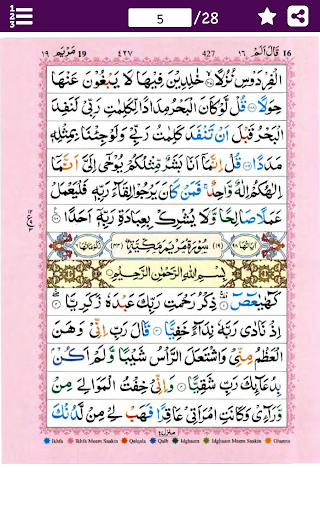 5 /28
١٩ مَرْيَم 19
٤٢٧
427
١٦ قَالَ اَلَمْ 16
الْفِرْدَوْسِ نُزُلًا ۙ خٰلِدِيْنَ فِيْهَا لَا يَبْغُوْنَ عَنْهَا
حِوَلًا قُلْ لَّوْ كَانَ الْبَحْرُ مِدَادًا لِّكَلِمٰتِ رَبِّيْ لَنَفِدَ
الْبَحْرُ قَبْلَ اَنْ تَنْفَدَ كَلِمٰتُ رَبِّيْ وَلَوْ جِئْنَا بِمِثْلِهٖ
مَدَدًا قُلْ اِنَّمَاۤ اَنَا بَشَرٌ مِّثْلُكُمْ يُوْحٰۤى اِلَيَّ اَنَّمَاۤ
اِلٰهُكُمْ اِلٰهٌ وَّاحِدٌ ۚ فَمَنْ كَانَ يَرْجُوْا لِقَآءَ رَبِّهٖ فَلْيَعْمَلْ
عَمَلًا صَالِحًا وَّلَا يُشْرِكْ بِعِبَادَةِ رَبِّهٖۤ اَحَدًا
اٰيَاتُهَا ٩٨ (١٩) سُوْرَةُ مَرْيَمَ مَكِّيَّةٌ (٤٤) رُكُوْعَاتُهَا ٦
بِسْمِ اللهِ الرَّحْمٰنِ الرَّحِيْمِ
كٓهٰيٰعٓصٓ ذِكْرُ رَحْمَتِ رَبِّكَ عَبْدَهٗ زَكَرِيَّا
اِذْ نَادٰى رَبَّهٗ نِدَآءً خَفِيًّا قَالَ رَبِّ اِنِّيْ وَهَنَ
الْعَظْمُ مِنِّيْ وَاشْتَعَلَ الرَّاْسُ شَيْبًا وَّلَمْ اَكُنْۢ
بِدُعَآئِكَ رَبِّ شَقِيًّا وَاِنِّيْ خِفْتُ الْمَوَالِيَ مِنْ
وَّرَآءِيْ وَكَانَتِ امْرَاَتِيْ عَاقِرًا فَهَبْ لِيْ مِنْ لَّدُنْكَ
منزل ٤
Ikhfa Ikhfa Meem Saakin Qalqala Qalb Idghaam Idghaam Meem Saakin Ghunna